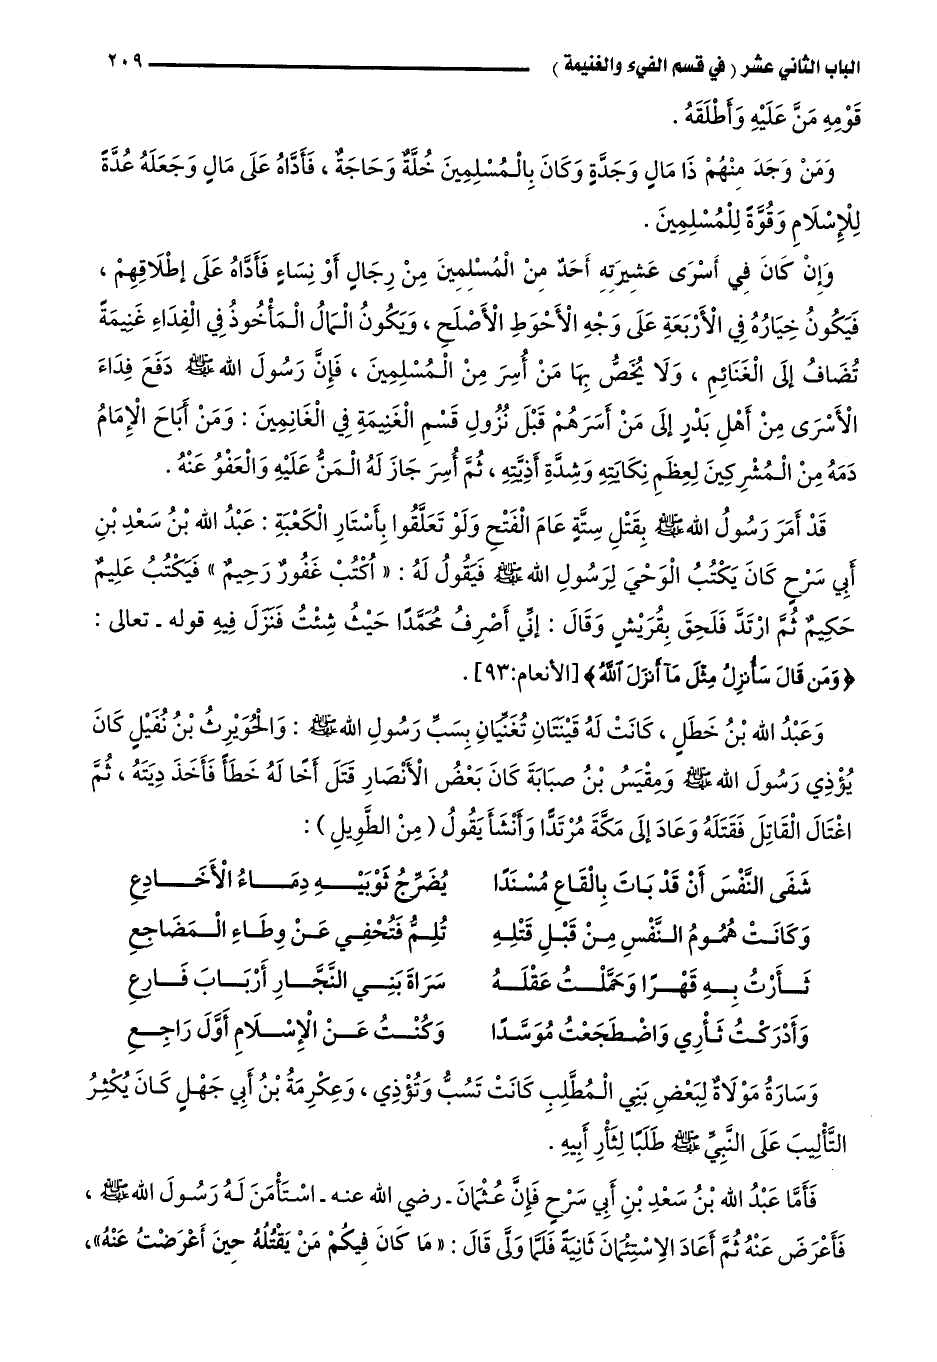 الباب الثاني عشر ( في قسم الفيء والغنيمة ) ٢٠٩
قَوْمِهِ مَنَّ عَلَيْهِ وَأَطْلَقَهُ .
وَمَنْ وَجَدَ مِنْهُمْ ذَا مَالٍ وَجَدَّةٍ وَكَانَ بِالْمُسْلِمِينَ خُلَّةٌ وَحَاجَةٌ ، فَأَدَّاهُ عَلَى مَالٍ وَجَعَلَهُ عُدَّةً
لِلْإِسْلَامِ وَقُوَّةً لِلْمُسْلِمِينَ .
وَإِنْ كَانَ فِي أَسْرَى عَشِيرَتِهِ أَحَدٌ مِنْ الْمُسْلِمِينَ مِنْ رِجَالٍ أَوْ نِسَاءٍ فَأَدَّاهُ عَلَى إطْلَاقِهِمْ ،
فَيَكُونُ خِيَارُهُ فِي الْأَرْبَعَةِ عَلَى وَجْهِ الْأَحْوَطِ الْأَصْلَحِ ، وَيَكُونُ الْمَالُ الْمَأْخُوذُ فِي الْفِدَاءِ غَنِيمَةً
تُضَافُ إلَى الْغَنَائِمِ ، وَلَا يُخَصُّ بِهَا مَنْ أُسِرَ مِنْ الْمُسْلِمِينَ ، فَإِنَّ رَسُولَ الله ﷺ دَفَعَ فِدَاءَ
الْأَسْرَى مِنْ أَهْلِ بَدْرٍ إلَى مَنْ أَسَرَهُمْ قَبْلَ نُزُولِ قَسْمِ الْغَنِيمَةِ فِي الْغَانِمِينَ : وَمَنْ أَبَاحَ الْإِمَامُ
دَمَهُ مِنْ الْمُشْرِكِينَ لِعِظَمِ نِكَايَتِهِ وَشِدَّةِ أَذِيَّتِهِ ، ثُمَّ أُسِرَ جَازَ لَهُ الْمَنُّ عَلَيْهِ وَالْعَفْوُ عَنْهُ .
قَدْ أَمَرَ رَسُولُ الله ﷺ بِقَتْلِ سِتَّةٍ عَامَ الْفَتْحِ وَلَوْ تَعَلَّقُوا بِأَسْتَارِ الْكَعْبَةِ : عَبْدُ الله بْنُ سَعْدِ بْنِ
أَبِي سَرْحٍ كَانَ يَكْتُبُ الْوَحْيَ لِرَسُولِ الله ﷺ فَيَقُولُ لَهُ : « اُكْتُبْ غَفُورٌ رَحِيمٌ » فَيَكْتُبُ عَلِيمٌ
حَكِيمٌ ثُمَّ ارْتَدَّ فَلَحِقَ بِقُرَيْشٍ وَقَالَ : إنِّي أَصْرِفُ مُحَمَّدًا حَيْثُ شِئْتُ فَنَزَلَ فِيهِ قوله ـ تعالى :
﴿وَمَن قَالَ سَأُنزِلُ مِثْلَ مَآ أَنزَلَ ٱللَّهُ﴾ [الأنعام:٩٣] .
وَعَبْدُ الله بْنُ خَطَلٍ ، كَانَتْ لَهُ قَيْنَتَانِ تُغَنِّيَانِ بِسَبِّ رَسُولِ الله ﷺ : وَالْحُوَيْرِثُ بْنُ نُفَيْلٍ كَانَ
يُؤْذِي رَسُولَ الله ﷺ وَمِقْيَسُ بْنُ صبَابَةَ كَانَ بَعْضُ الْأَنْصَارِ قَتَلَ أَخًا لَهُ خَطَأً فَأَخَذَ دِيَتَهُ ، ثُمَّ
اغْتَالَ الْقَاتِلَ فَقَتَلَهُ وَعَادَ إلَى مَكَّةَ مُرْتَدًّا وَأَنْشَأَ يَقُولُ ( مِنْ الطَّوِيلِ ) :
شَفَى النَّفْسَ أَنْ قَدْ بَاتَ بِالْقَاعِ مُسْنَدًا يُضَرِّجُ ثَوْبَيْهِ دِمَاءُ الْأَخَادِعِ
وَكَانَتْ هُمُومُ النَّفْسِ مِنْ قَبْلِ قَتْلِهِ تُلِمُّ فَتُحْفِي عَنْ وِطَاءِ الْمَضَاجِعِ
ثَأَرْتُ بِهِ قَهْرًا وَحَمَّلْتُ عَقْلَهُ سَرَاةَ بَنِي النَّجَّارِ أَرْبَابَ فَارِعِ
وَأَدْرَكْتُ ثَأْرِي وَاضْطَجَعْتُ مُوَسَّدًا وَكُنْتُ عَنْ الْإِسْلَامِ أَوَّلَ رَاجِعِ
وَسَارَةُ مَوْلَاةٌ لِبَعْضِ بَنِي الْمُطَّلِبِ كَانَتْ تَسُبُّ وَتُؤْذِي ، وَعِكْرِمَةُ بْنُ أَبِي جَهْلٍ كَانَ يُكْثِرُ
التَّأْلِيبَ عَلَى النَّبِيِّ ﷺ طَلَبًا لِثَأْرِ أَبِيهِ .
فَأَمَّا عَبْدُ الله بْنُ سَعْدِ بْنِ أَبِي سَرْحٍ فَإِنَّ عُثْمَانَ ـ رضي الله عنه ـ اسْتَأْمَنَ لَهُ رَسُولَ الله ﷺ ،
فَأَعْرَضَ عَنْهُ ثُمَّ أَعَادَ الِاسْتِئْمَانَ ثَانِيَةً فَلَمَّا وَلَّى قَالَ : « مَا كَانَ فِيكُمْ مَنْ يَقْتُلُهُ حِينَ أَعْرَضْتُ عَنْهُ»،